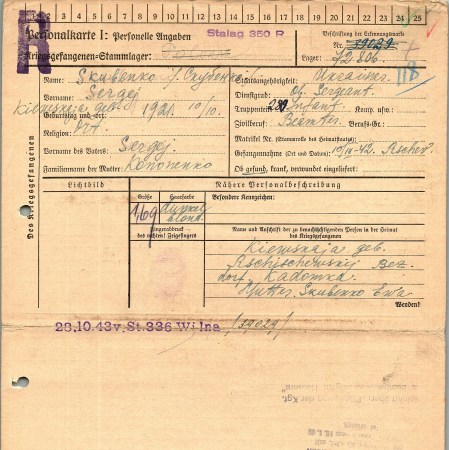 1 2 3 4 5 6 7 8 9 10 11 12 13 14 15 16 17 18 19 20 21 22 23 24 25
R
Personalkarte I: Personelle Angaben
Stalag 350 R
Beschriftung der Erkennungsmarke
Kriegsgefangenen-Stammlager:
Nr. 39029
Lager: 72806
118
Des Kriegsgefangenen
Name: Skubenko /
Staatsangehörigkeit: Ukrainer
Vorname: Sergej
Dienstgrad: Ob. Sergeant
Geburtstag und -ort: 1921. 10/10.
Truppenteil: Infant. Komp. usw.:
Religion:
Zivilberuf: Beamter Berufs-Gr.:
Vorname des Vaters: Sergej
Matrikel Nr. (Stammrolle des Heimatstaates):
Gefangennahme (Ort und Datum): 10/IV-42.
Familienname der Mutter: Kononenko
Ob gesund, krank, verwundet eingeliefert:
Lichtbild
Nähere Personalbeschreibung
Größe
Haarfarbe
Besondere Kennzeichen:
1,69
dunkelblond.
Fingerabdruck
des rechten! Zeigefingers
Name und Anschrift der zu benachrichtigenden Person in der Heimat
des Kriegsgefangenen
Kiewskaja geb.
Bez.
dorf, Kadomka
Mutter Skubenko Ewa
Wenden!
28.10.43 v. St. 336 Wilna /39029/